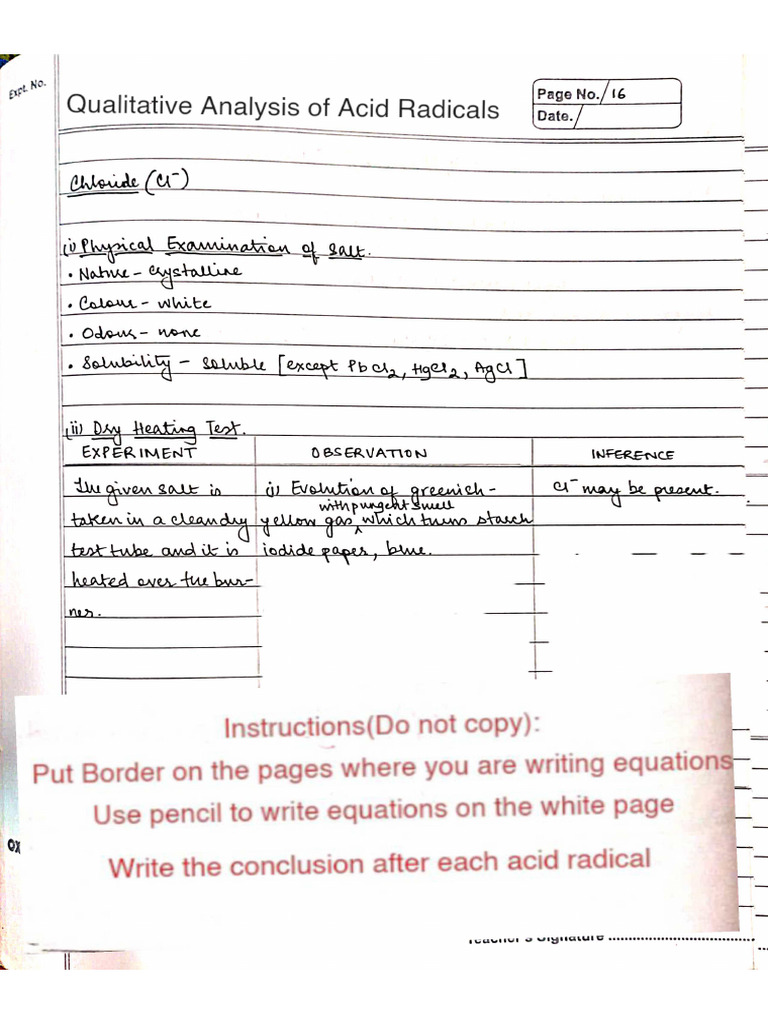 Expt. No.
Qualitative Analysis of Acid Radicals
Page No. 16
Date.
Chloride (Cl⁻)
(i) Physical Examination of Salt.
• Nature – Crystalline
• Colour – white
• Odour – none
• Solubility – soluble [except PbCl2, HgCl2, AgCl]
(ii) Dry Heating Test.
EXPERIMENT OBSERVATION INFERENCE
The given salt is (i) Evolution of greenish- Cl⁻ may be present.
with pungent smell
taken in a clean dry yellow gas ^ which turns starch
test tube and it is iodide paper, blue.
heated over the bur-
ner.
Instructions(Do not copy):
Put Border on the pages where you are writing equations
Use pencil to write equations on the white page
Write the conclusion after each acid radical
OX
Teacher's Signature